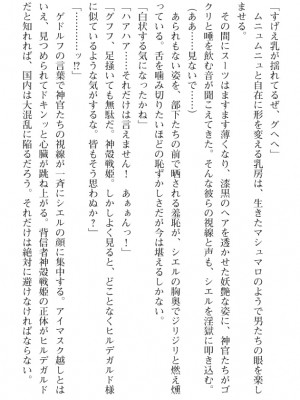 「すげえ乳が揺れてるぜ、グヘへ」
　ムニュムニュと自在に形を変える乳房は、生きたマシュマロのようで男たちの眼を楽し
ませる。
　その間にスーツはますます薄くなり、漆黒のヘアを透かせた妖艶な姿に、神官たちがゴ
クリと唾を飲む音が聞こえてきた。そんな彼らの視線と声も、シエルを淫獄に叩き込む。
（ああ……見ないで……）
　あられもない姿を、部下たちの前で晒される羞恥が、シエルの胸奥でジリジリと燃え燻
っている。舌を噛み切りたいほどの恥ずかしさだが今は堪えるしかない。
「白状する気になったかね」
「ハアハア……それだけは言えません！　あぁぁんっ！」
「グフフ、足掻いても無駄だ。神殻戦姫。しかしよく見ると、どことなくヒルデガルド様
に似ているような気がするな。皆もそう思わぬか？」
（……っ!?）
　ゲドルフの言葉で神官たちの視線が一斉にシエルの顔に集中する。アイマスク越しとは
いえ、見つめられてドキンッと心臓が跳ね上がる。背信者神殻戦姫の正体がヒルデガルド
だと知れれば、国内は大混乱に陥るだろう。それだけは絶対に避けなければならない。